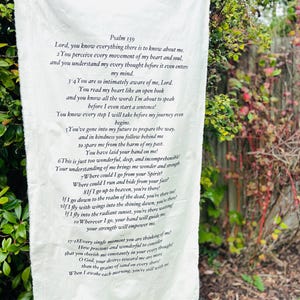 Psalm 139
Lord, you know everything there is to know about me.
2You perceive every movement of my heart and soul,
and you understand my every thought before it even enters
my mind.
3-4You are so intimately aware of me, Lord.
You read my heart like an open book
and you know all the words I'm about to speak
before I even start a sentence!
You know every step I will take before my journey even
begins.
5You've gone into my future to prepare the way,
and in kindness you follow behind me
to spare me from the harm of my past.
You have laid your hand on me!
6This is just too wonderful, deep, and incomprehensible!
Your understanding of me brings me wonder and strength.
7Where could I go from your Spirit?
Where could I run and hide from your face?
8If I go up to heaven, you're there!
If I go down to the realm of the dead, you're there too!
9If I fly with wings into the shining dawn, you're there!
If I fly into the radiant sunset, you're there waiting!
10Wherever I go, your hand will guide me;
your strength will empower me.
17-18Every single moment you are thinking of me!
How precious and wonderful to consider
that you cherish me constantly in your every thought!
O God, your desires toward me are more
than the grains of sand on every shore!
When I awake each morning, you're still with me.